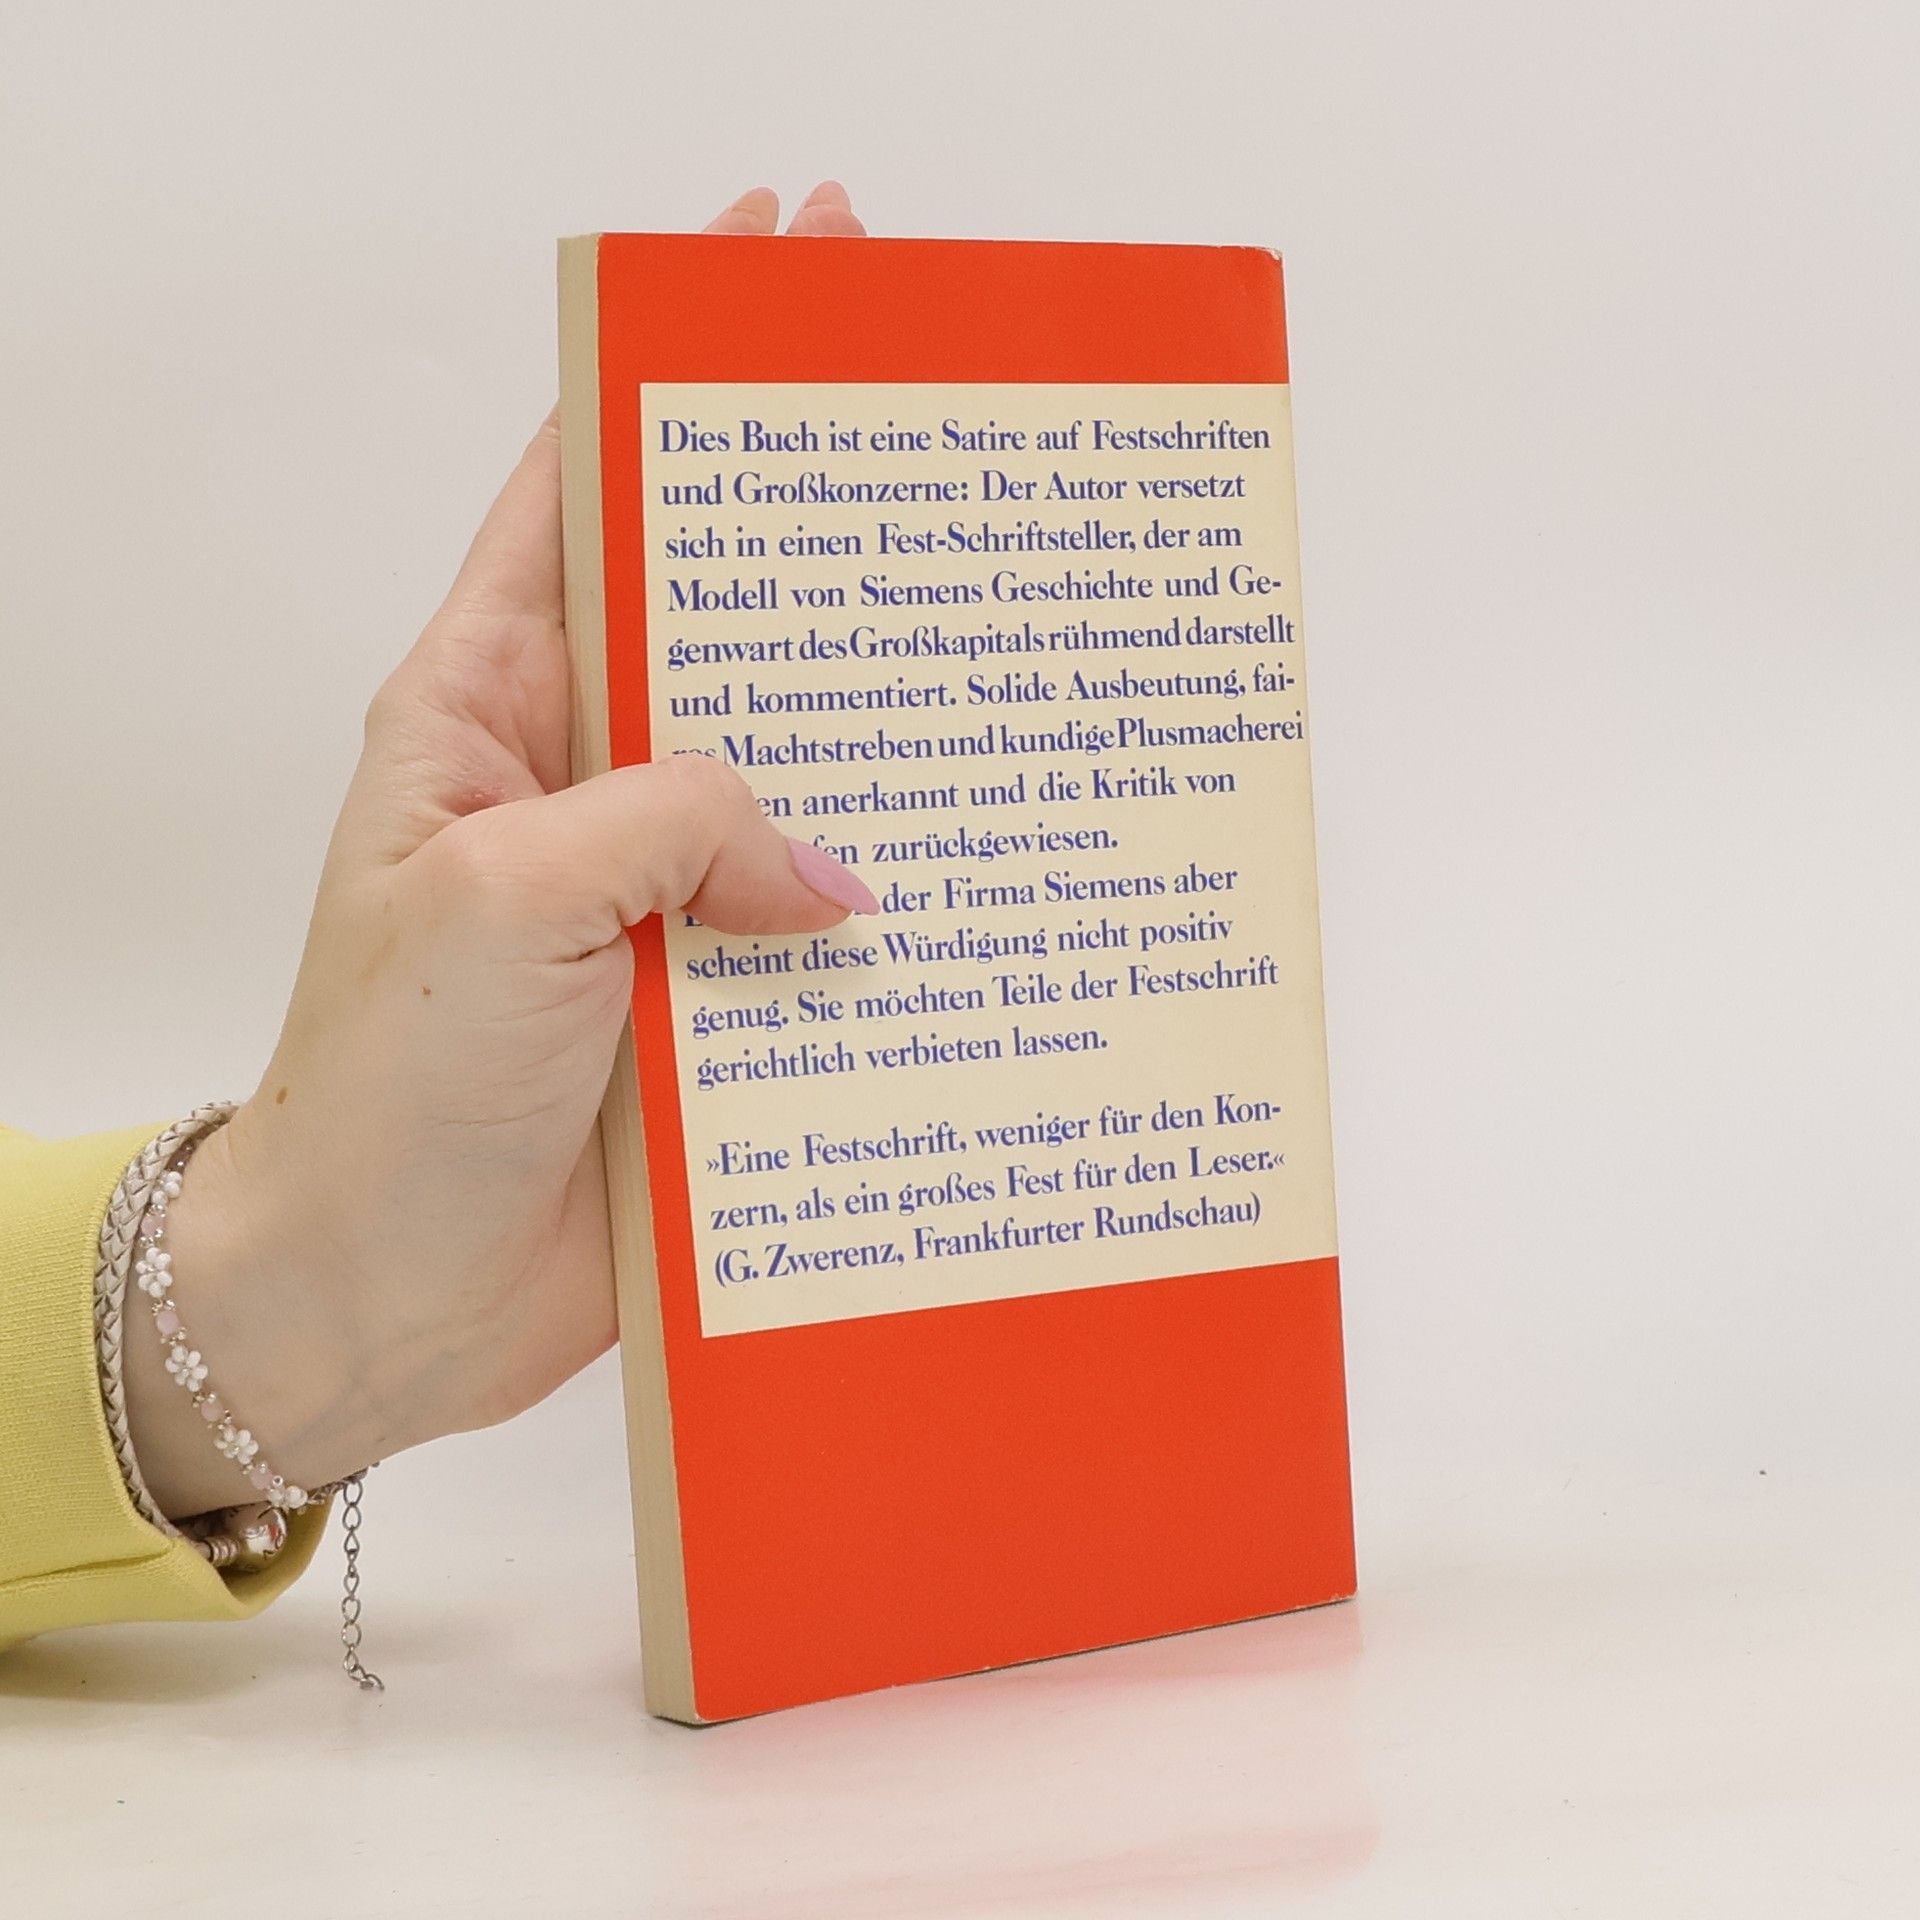 Dies Buch ist eine Satire auf Festschriften
und Großkonzerne: Der Autor versetzt
sich in einen Fest-Schriftsteller, der am
Modell von Siemens Geschichte und Ge-
genwart des Großkapitals rühmend darstellt
und kommentiert. Solide Ausbeutung, fai-
Machtstreben und kundige Plusmacherei
anerkannt und die Kritik von
zurückgewiesen.
der Firma Siemens aber
scheint diese Würdigung nicht positiv
genug. Sie möchten Teile der Festschrift
gerichtlich verbieten lassen.
»Eine Festschrift, weniger für den Kon-
zern, als ein großes Fest für den Leser.«
(G. Zwerenz, Frankfurter Rundschau)